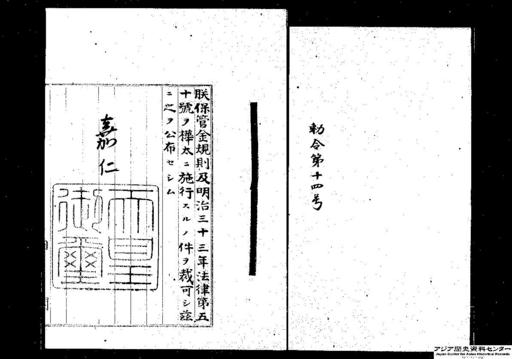 勅令第十四号
朕保管金規則及明治三十三年法律第五
十號ヲ樺太ニ施行スルノ件ヲ裁可シ茲
ニ之ヲ公布セシム
嘉仁
天皇
御璽
アジア歴史資料センター
Japan Center for Asian Historical Records